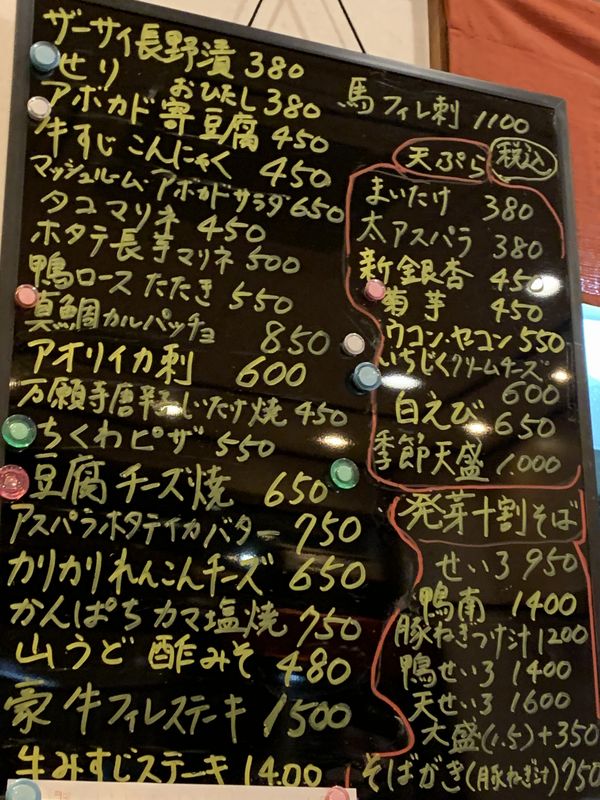 ザーサイ長野漬 380
せり おひたし 380
アボカド寄豆腐 450
牛すじこんにゃく 450
マッシュルーム・アボカドサラダ 650
タコマリネ 450
ホタテ長芋マリネ 500
鴨ロースたたき 550
真鯛カルパッチョ 850
アオリイカ刺 600
万願寺唐辛子しいたけ焼 450
ちくわピザ 550
豆腐チーズ焼 650
アスパラホタテイカバター 750
カリカリれんこんチーズ 650
かんぱちカマ塩焼 750
山うど酢みそ 480
豪牛フィレステーキ 1500
牛みすじステーキ 1400
馬フィレ刺 1100
天ぷら 税込
まいたけ 380
太アスパラ 380
新銀杏 450
菊芋 450
ウコン・セコン 550
いちじくクリームチーズ 600
白えび 650
季節天盛 1.000
発芽十割そば
せいろ 950
鴨南 1400
豚ねぎつけ汁 1200
鴨せいろ 1400
天せいろ 1600
大盛(1.5)+350
そばがき(豚ねぎ汁) 750